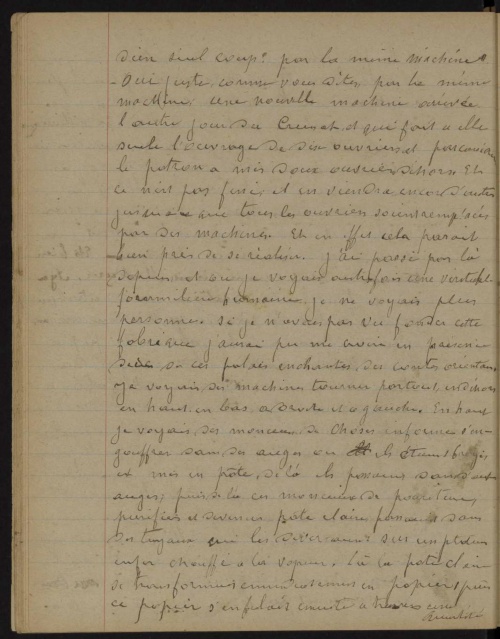 d'un seul coup? par la même machine
- Oui juste comme vous dites, par la même
machine. Une nouvelle machine arrivée
l'autre jour du Creusot et qui fait à elle
seule l'ouvrage de dix ouvriers et
le patron a mis deux ouvriers dehors. Et
ce n'est pas fini, il en viendra encore d'autres
jusqu'à ce que tous les ouvriers soient remplacés
par des machines. Et en effet cela parait
bien près de se réaliser. J'ai passé par là
depuis, et où je voyais autrefois une véritable
fourmilière humaine, je ne voyais plus
personne. Si je n'avais pas vu fonder cette
fabrique j'aurai pu me croire en présence
de ces palais enchantés des contes orientaux
Je voyais des machines tourner partout, en dehors
en haut, en bas, à droite et à gauche. En haut
je voyais des monceaux de choses informes s'en-
gouffrer dans des auges où ils étaient broyés
et mis en pâte, de là ils passaient dans d'autres
auges; puis de là ces monceaux de pourritures
purifiés et devenus pâte claire passaient dans
des tuyaux qui les déversaient sur un plateau
enfer chauffé à la vapeur. Là la pâte claire
se transformait en papier, puis
ce papier s'enfilait ensuite à travers une